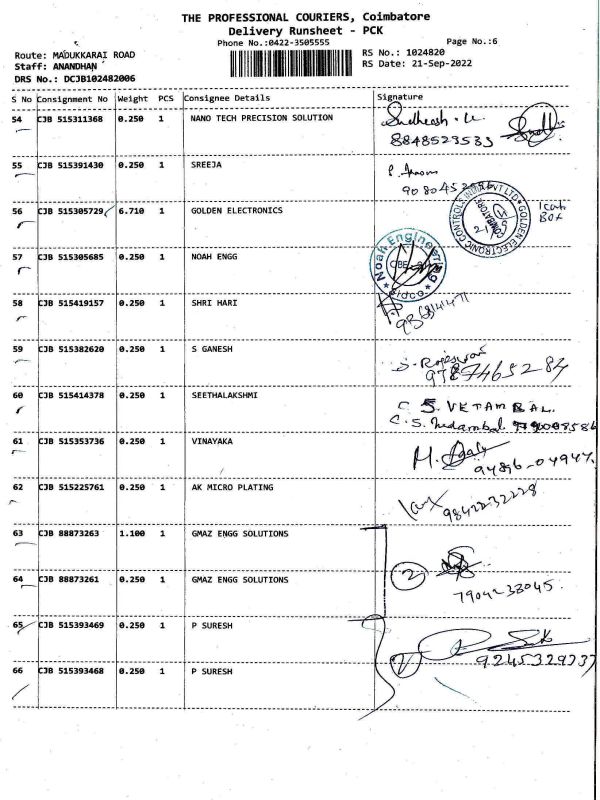 THE PROFESSIONAL COURIERS, Coimbatore
Delivery Runsheet - PCK
Phone No.:0422-3505555
Page No.:6
Route: MADUKKARAI ROAD
RS No.: 1024820
Staff: ANANDHAN
RS Date: 21-Sep-2022
DRS No.: DCJB102482006
S No Consignment No Weight PCS Consignee Details Signature
54 CJB 515311368 0.250 1 NANO TECH PRECISION SOLUTION
8848523533
55 CJB 515391430 0.250 1 SREEJA
56 CJB 515305729 6.710 1 GOLDEN ELECTRONICS
GOLDEN ELECTRONIC CONTROLS INDIA PVT LTD
BOX
57 CJB 515305685 0.250 1 NOAH ENGG
Noah Engineering
Sidco
58 CJB 515419157 0.250 1 SHRI HARI
59 CJB 515382620 0.250 1 S GANESH
9787465284
60 CJB 515414378 0.250 1 SEETHALAKSHMI
C S. VETAMBAL.
61 CJB 515353736 0.250 1 VINAYAKA
62 CJB 515225761 0.250 1 AK MICRO PLATING
9842232228
63 CJB 88873263 1.100 1 GMAZ ENGG SOLUTIONS
64 CJB 88873261 0.250 1 GMAZ ENGG SOLUTIONS
2
7904238045.
65 CJB 515393469 0.250 1 P SURESH
9245329737
66 CJB 515393468 0.250 1 P SURESH